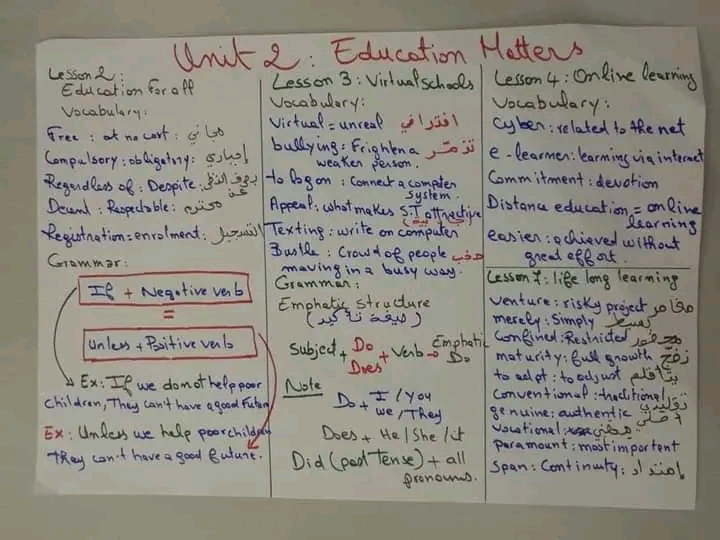 Unit 2 : Education Matters
Lesson 2 :
Education For all
Vocabulary :
Free : at no cost : مجاني
Compulsory : obligatory : إجباري
Regardless of : Despite : بصرف النظر عن
Decent : Respectable : محترم
Registration = enrolment : التسجيل
Grammar :
If + Negative verb
=
Unless + Positive verb
Ex : If we do not help poor
children, They can't have a good Future
Ex : Unless we help poor children
They can't have a good future.
Lesson 3 : Virtual Schools
Vocabulary :
Virtual = unreal افتراضي
bullying : Frighten a تنمّر
weaker person.
to log on : Connect a computer
system.
Appeal : what makes S.T attractive
Texting : write on computer
Bustle : Crowd of people صخب
moving in a busy way.
Grammar :
Emphatic structure
(صيغة تأكيد)
Subject + Do
Does + Verb → Emphatic
Do
Note
Do + I / You
we / They
Does + He / She / it
Did (past Tense) + all
pronouns.
Lesson 4 : Online learning
Vocabulary :
Cyber : related to the net
e-learner : learning via internet
Commitment : devotion
Distance education = online
learning
easier : achieved without
great effort.
Lesson 7 : life long learning
venture : risky project
merely : Simply
Confined : Restricted محصور
maturity : full growth نضج
to adapt : to adjust يتأقلم
Conventional : traditional تقليدي
genuine : authentic أصلي
vocational : مهني
paramount : most important
span : Continuity : إمتداد